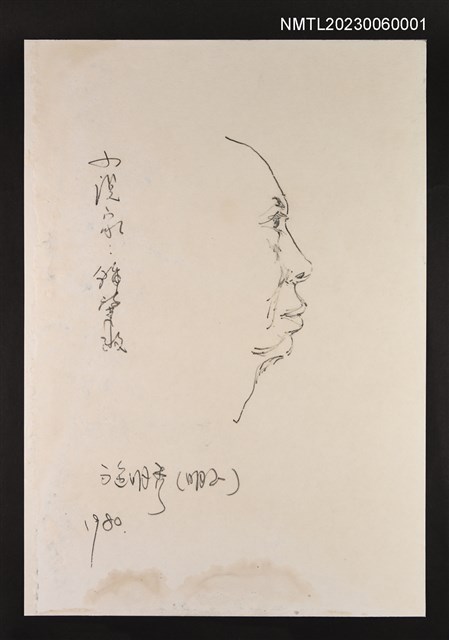 NMTL20230060001
小説家：鍾肇政
施明秀(明子)
1980.